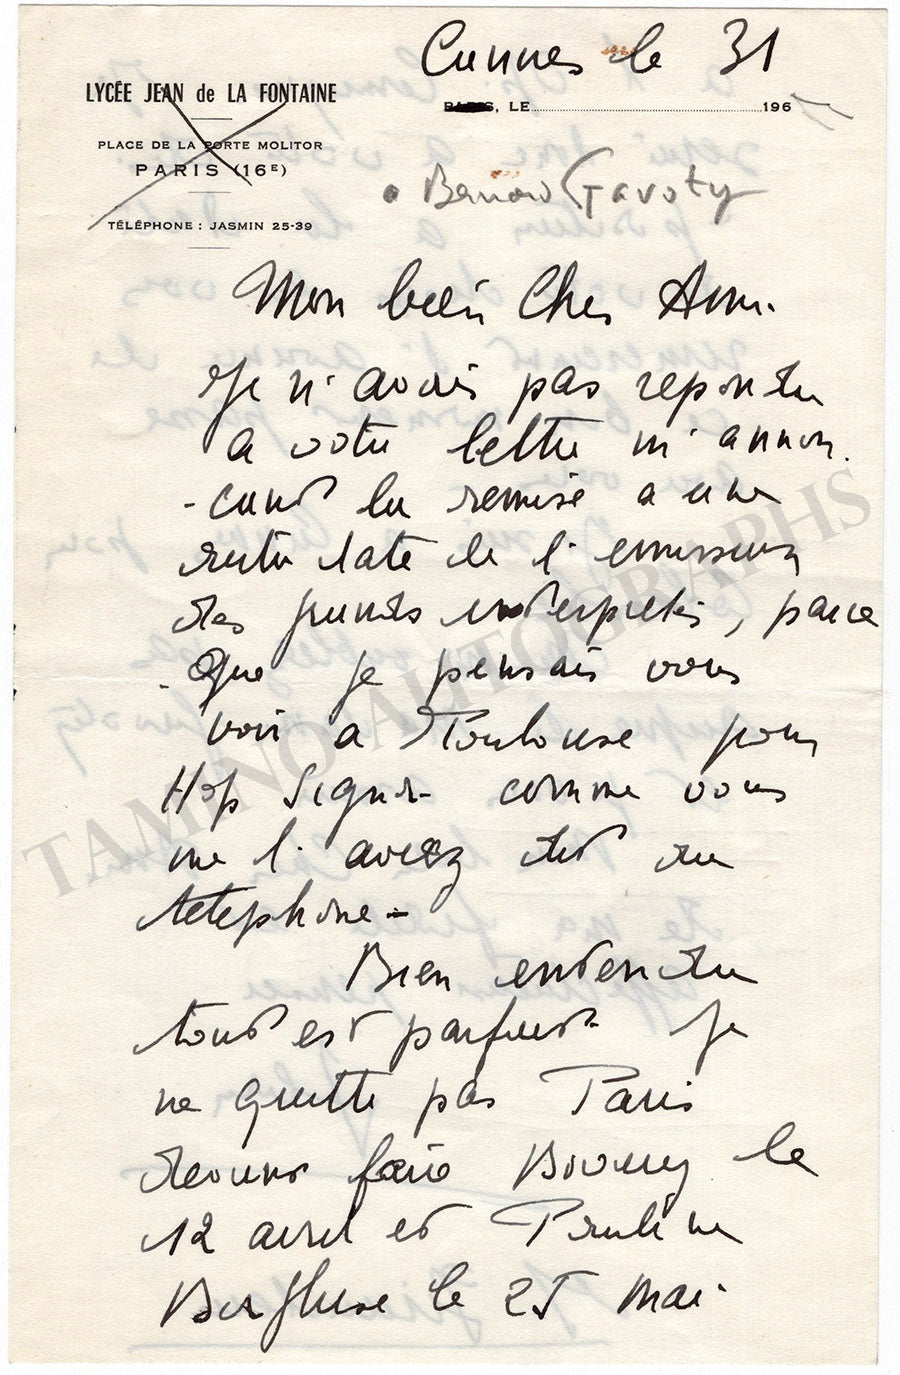 Cannes le 31
LYCÉE JEAN de LA FONTAINE
PARIS, LE 196
PLACE DE LA PORTE MOLITOR
PARIS (16E)
TÉLÉPHONE : JASMIN 25-39
a Bernard Gavoty
Mon bien Cher Ami.
Je n'avais pas repondu
a votre lettre m'annon.
-cant la remise a une
date de l'emission
des grands interpretes, parce
Que je pensais vous
voir a Toulouse pour
Hop Signor comme vous
me l'aviez dit au
telephone-
Bien entendu
tout est parfait. Je
ne quitte pas Paris
devant faire Bovary le
12 avril et Pauline
Borghese le 25 mai.
TAMINO AUTOGRAPHS